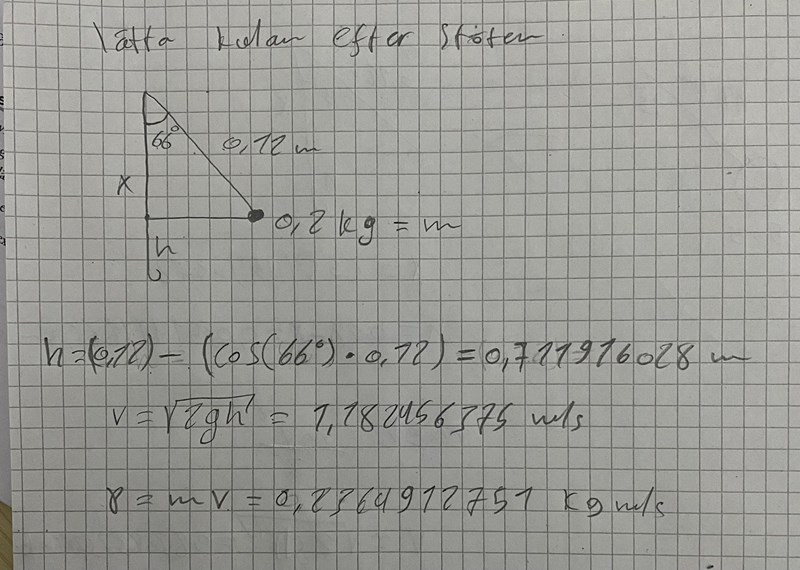 Lätta kulan efter stöten
66°
0,12 m
x
0,2 kg = m
h
h = (0,12) - (cos(66°) · 0,12) = 0,711916028 m
v = √2gh = 1,182456375 m/s
p = m v = 0,2364912751 kg m/s